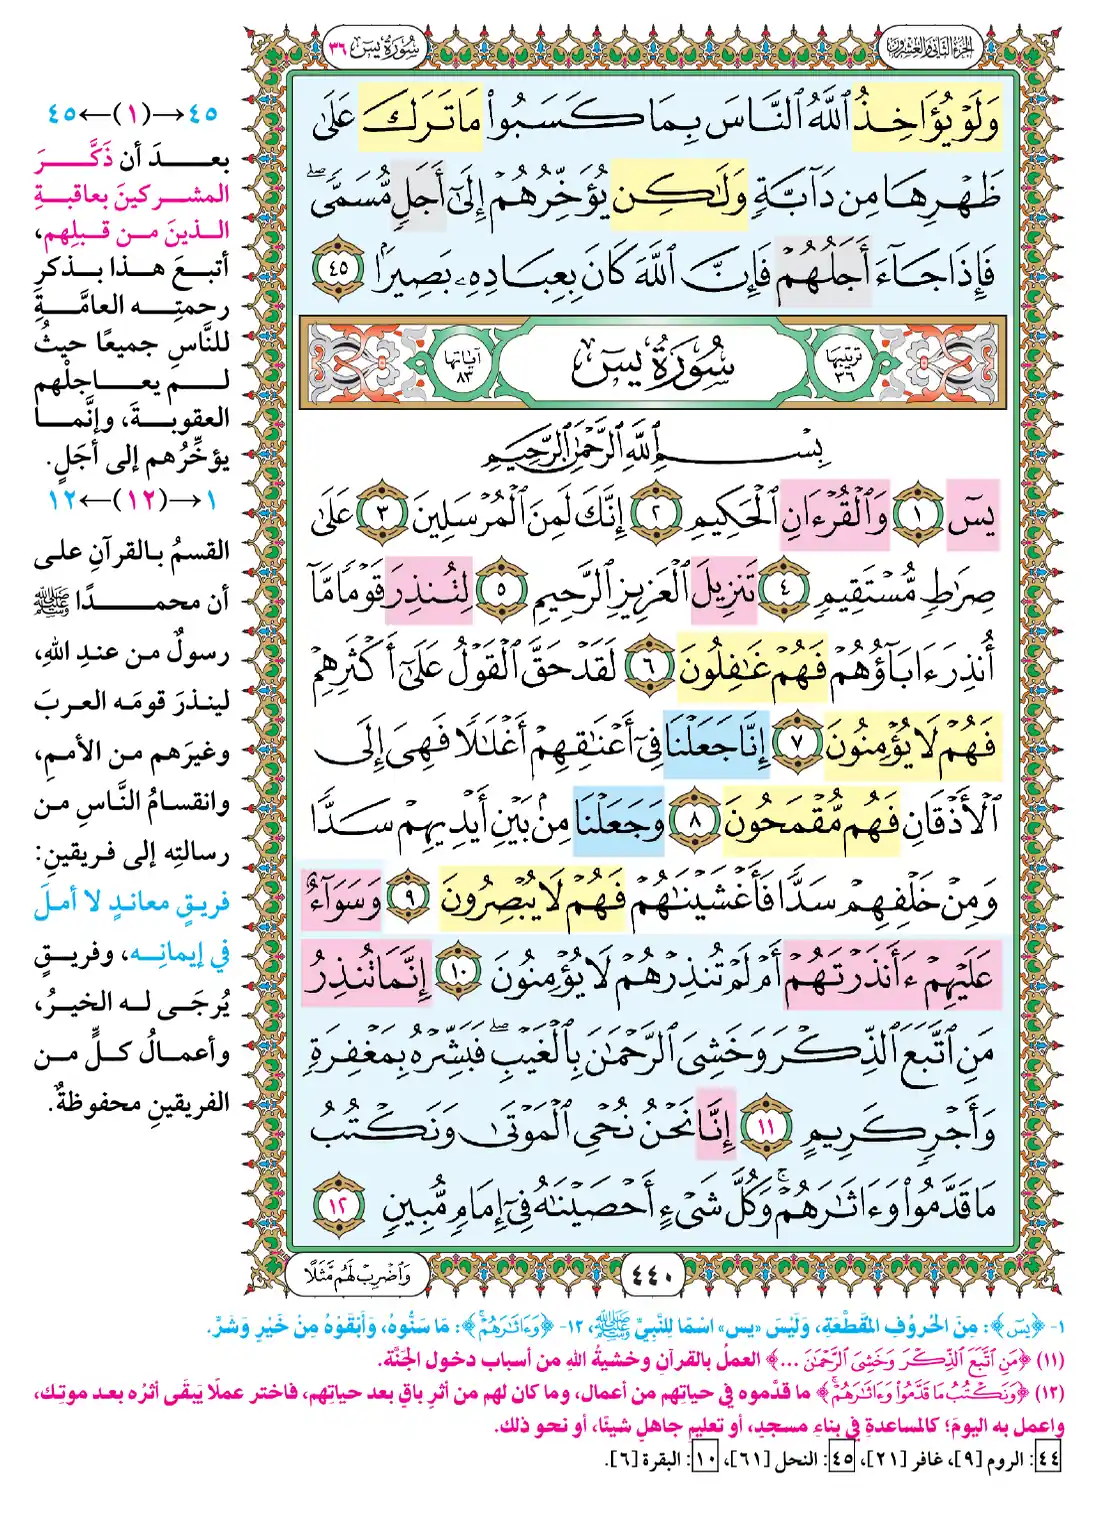 الجزء الثاني والعشرون
سورة يس ٣٦
وَلَوْ يُؤَاخِذُ ٱللَّهُ ٱلنَّاسَ بِمَا كَسَبُوا۟ مَا تَرَكَ عَلَىٰ
ظَهْرِهَا مِن دَآبَّةٍ وَلَٰكِن يُؤَخِّرُهُمْ إِلَىٰٓ أَجَلٍ مُّسَمًّى ۖ
فَإِذَا جَآءَ أَجَلُهُمْ فَإِنَّ ٱللَّهَ كَانَ بِعِبَادِهِۦ بَصِيرًۢا ٤٥
ترتيبها ٣٦
سُورَةُ يسٓ
آياتها ٨٣
بِسْمِ ٱللَّهِ ٱلرَّحْمَٰنِ ٱلرَّحِيمِ
يسٓ ١ وَٱلْقُرْءَانِ ٱلْحَكِيمِ ٢ إِنَّكَ لَمِنَ ٱلْمُرْسَلِينَ ٣ عَلَىٰ
صِرَٰطٍ مُّسْتَقِيمٍ ٤ تَنزِيلَ ٱلْعَزِيزِ ٱلرَّحِيمِ ٥ لِتُنذِرَ قَوْمًا مَّآ
أُنذِرَ ءَابَآؤُهُمْ فَهُمْ غَٰفِلُونَ ٦ لَقَدْ حَقَّ ٱلْقَوْلُ عَلَىٰٓ أَكْثَرِهِمْ
فَهُمْ لَا يُؤْمِنُونَ ٧ إِنَّا جَعَلْنَا فِىٓ أَعْنَٰقِهِمْ أَغْلَٰلًا فَهِىَ إِلَى
ٱلْأَذْقَانِ فَهُم مُّقْمَحُونَ ٨ وَجَعَلْنَا مِنۢ بَيْنِ أَيْدِيهِمْ سَدًّا
وَمِنْ خَلْفِهِمْ سَدًّا فَأَغْشَيْنَٰهُمْ فَهُمْ لَا يُبْصِرُونَ ٩ وَسَوَآءٌ
عَلَيْهِمْ ءَأَنذَرْتَهُمْ أَمْ لَمْ تُنذِرْهُمْ لَا يُؤْمِنُونَ ١٠ إِنَّمَا تُنذِرُ
مَنِ ٱتَّبَعَ ٱلذِّكْرَ وَخَشِىَ ٱلرَّحْمَٰنَ بِٱلْغَيْبِ ۖ فَبَشِّرْهُ بِمَغْفِرَةٍ
وَأَجْرٍ كَرِيمٍ ١١ إِنَّا نَحْنُ نُحْىِ ٱلْمَوْتَىٰ وَنَكْتُبُ
مَا قَدَّمُوا۟ وَءَاثَٰرَهُمْ ۚ وَكُلَّ شَىْءٍ أَحْصَيْنَٰهُ فِىٓ إِمَامٍ مُّبِينٍ ١٢
٤٤٠
وَاضْرِبْ لَهُم مَّثَلًا
٤٥→(١)←٤٥
بعدَ أن ذَكَّرَ
المشركينَ بعاقبةِ
الذينَ من قبلِهم،
أتبعَ هذا بذكرِ
رحمتِه العامَّةِ
للنَّاسِ جميعًا حيثُ
لم يعاجلْهم
العقوبةَ، وإنَّما
يؤخِّرُهم إلى أجَلٍ.
١→(١٢)←١٢
القسمُ بالقرآنِ على
أن محمدًا ﷺ
رسولٌ من عندِ اللهِ،
لينذرَ قومَه العربَ
وغيرَهم من الأممِ،
وانقسامُ النَّاسِ من
رسالتِه إلى فريقينِ:
فريقٍ معاندٍ لا أملَ
في إيمانِه، وفريقٍ
يُرجَى له الخيرُ،
وأعمالُ كلٍّ من
الفريقينِ محفوظةٌ.
١- ﴿يسٓ﴾: مِنَ الحُرُوفِ المُقَطَّعَةِ، وَلَيْسَ «يس» اسْمًا لِلنَّبِيِّ ﷺ، ١٢- ﴿وَءَاثَٰرَهُمْ﴾: مَا سَنُّوهُ، وَأَبْقَوْهُ مِنْ خَيْرٍ وَشَرٍّ.
(١١) ﴿مَنِ ٱتَّبَعَ ٱلذِّكْرَ وَخَشِىَ ٱلرَّحْمَٰنَ ...﴾ العملُ بالقرآنِ وخشيةُ اللهِ من أسباب دخول الجَنَّة.
(١٢) ﴿وَنَكْتُبُ مَا قَدَّمُوا۟ وَءَاثَٰرَهُمْ﴾ ما قدَّموه في حياتِهم من أعمال، وما كان لهم من أثرٍ باقٍ بعد حياتِهم، فاختر عملًا يَبقَى أثرُه بعد موتِك،
واعمل به اليومَ؛ كالمساعدةِ في بناءِ مسجدٍ، أو تعليمِ جاهلٍ شيئًا، أو نحو ذلك.
٤٤: الروم [٩]، غافر [٢١]، ٤٥: النحل [٦١]، ١٠: البقرة [٦].